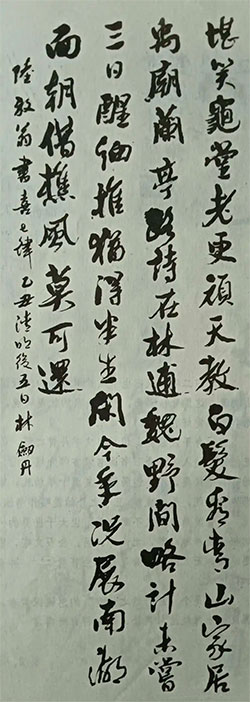 堪笑龜堂老更頑天教白髮看青山家居
禹廟蘭亭路詩在林逋魏野間略計未嘗
三日醒細推猶得半生閑今年況展南湖
面朝借樵風莫可還
陸放翁書喜七律 乙丑清明後五日 林劍丹